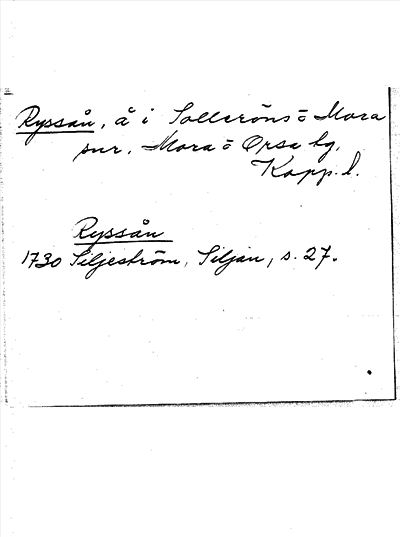 Ryssån, å i Solleröns o Mora
snr, Mora o Orsa tg,
Kopp. l.
Ryssån
1730 Siljeström, Siljan, s. 27.